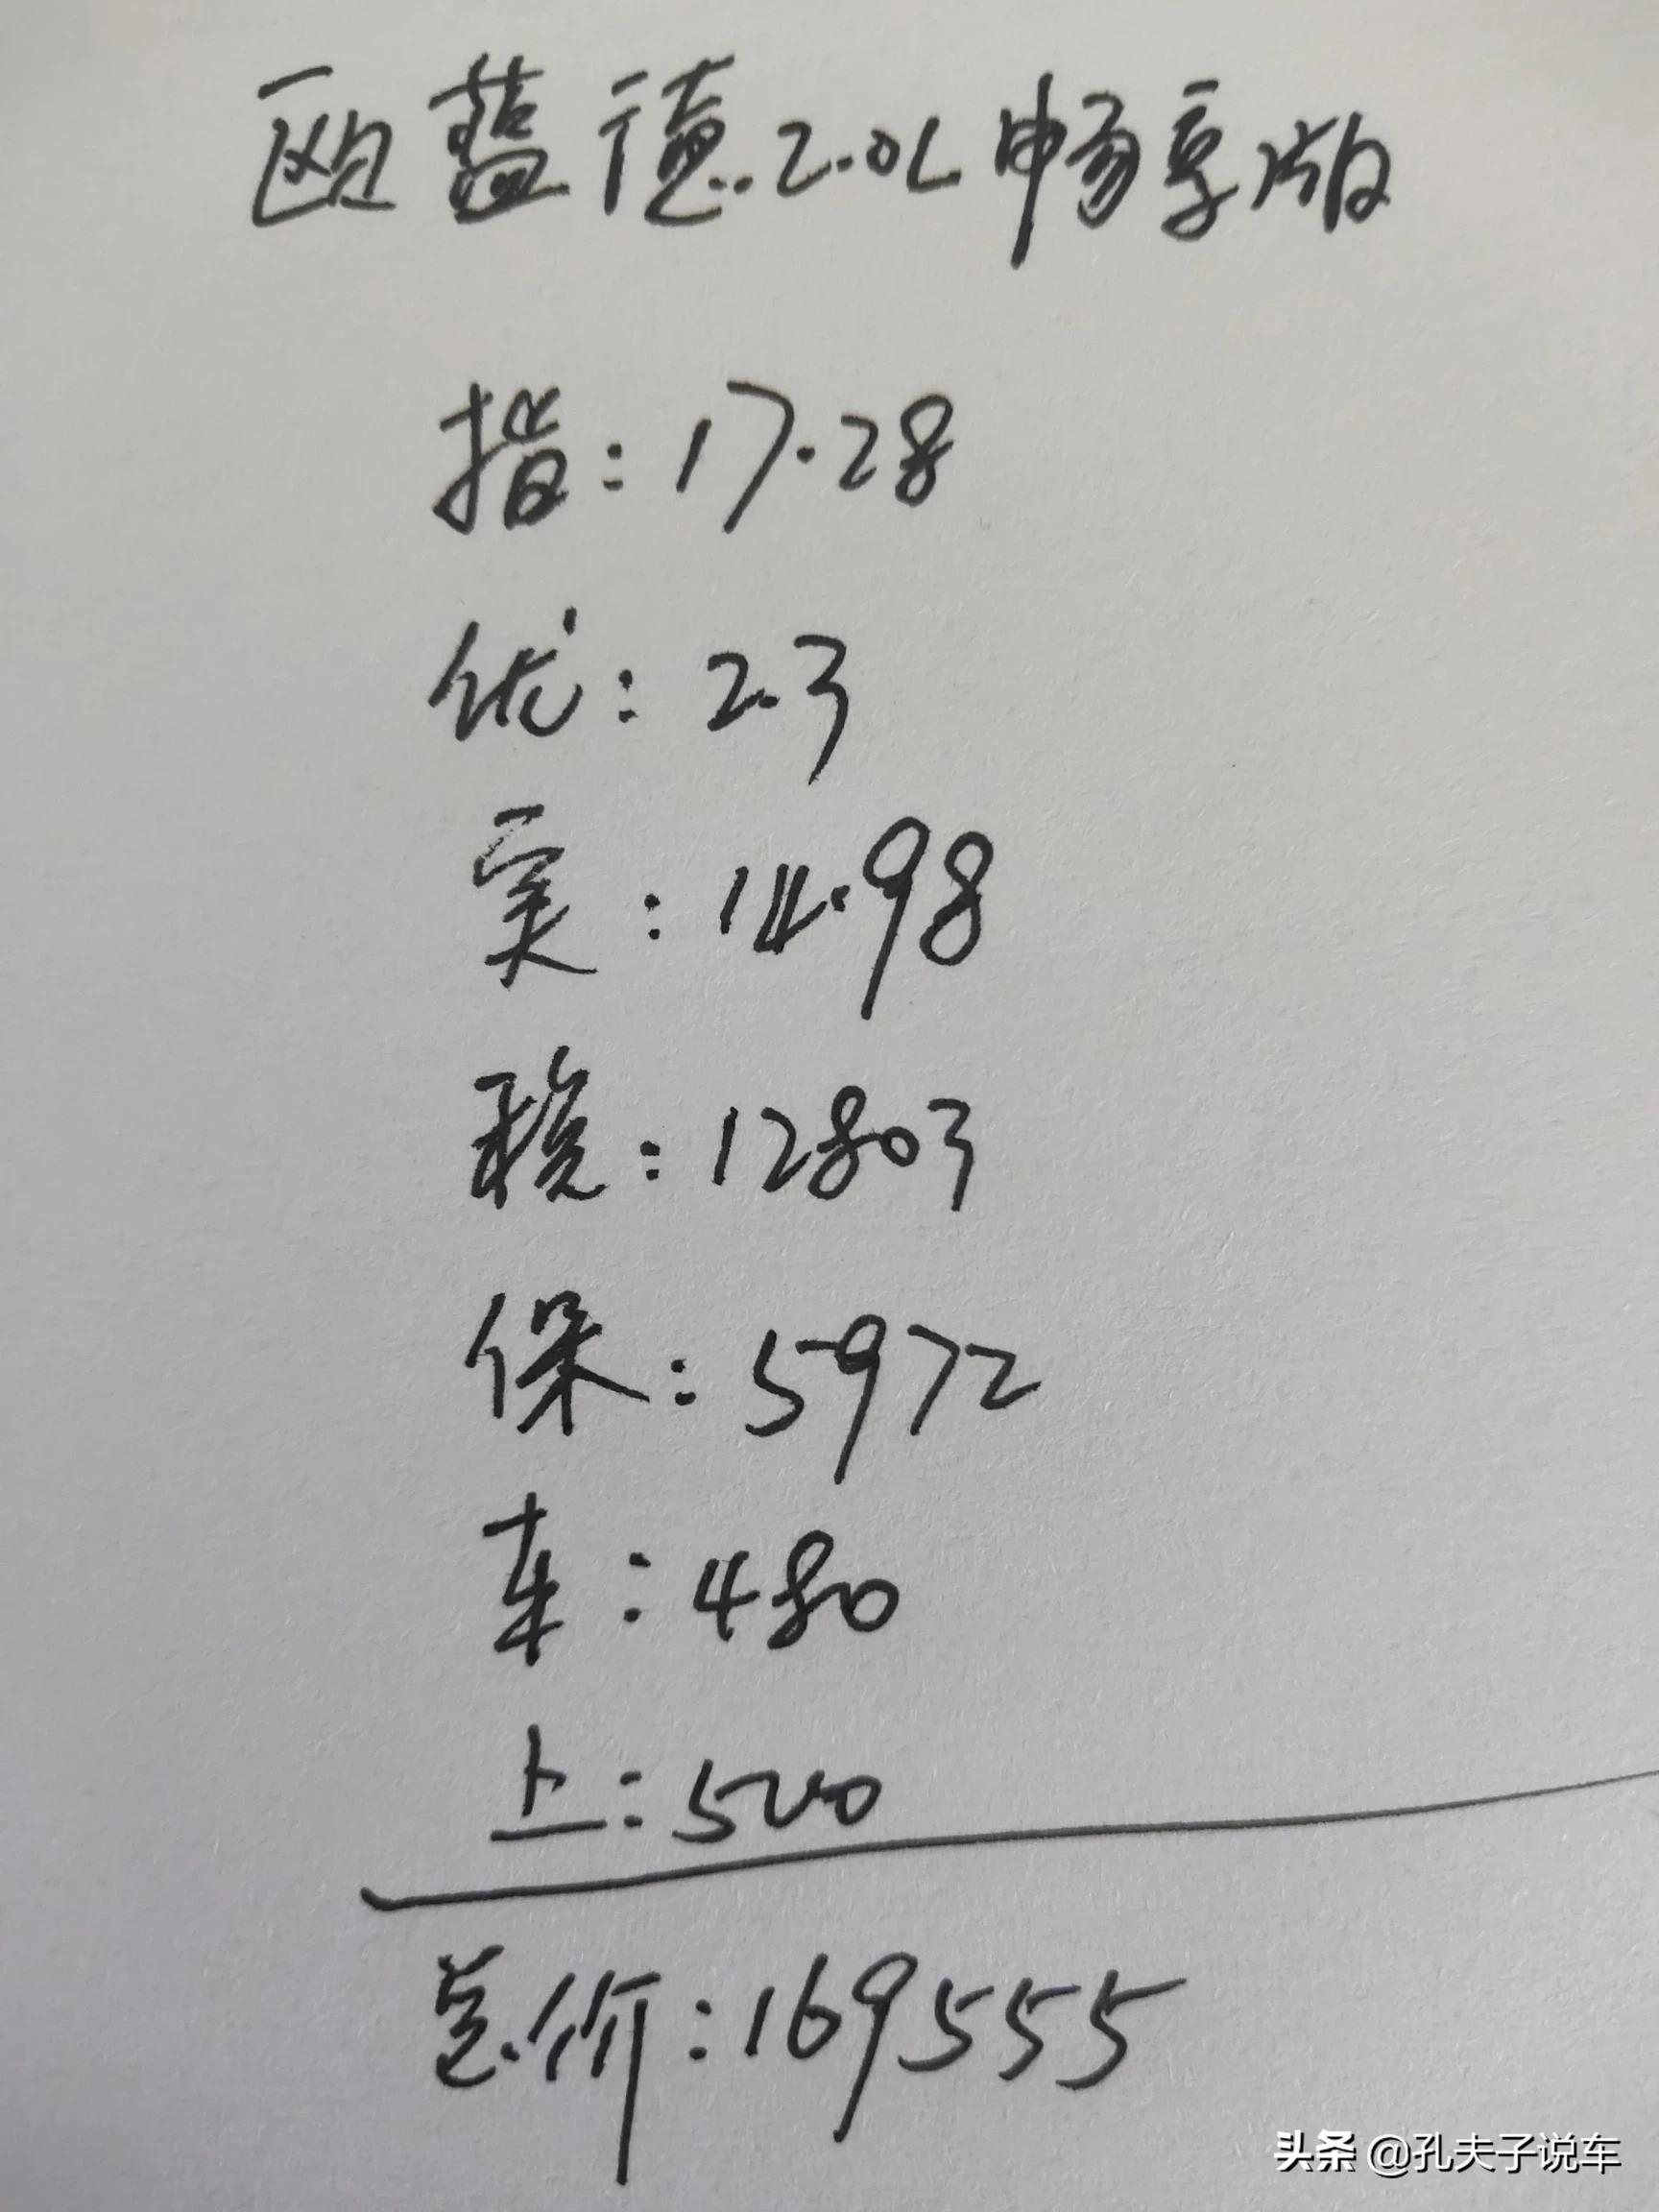 欧蕴德2.0L畅享版
指:17.28
优:2.3
实:14.98
税:12803
保:5972
车:480
上:500
总价:169555
头条 @孔夫子说车